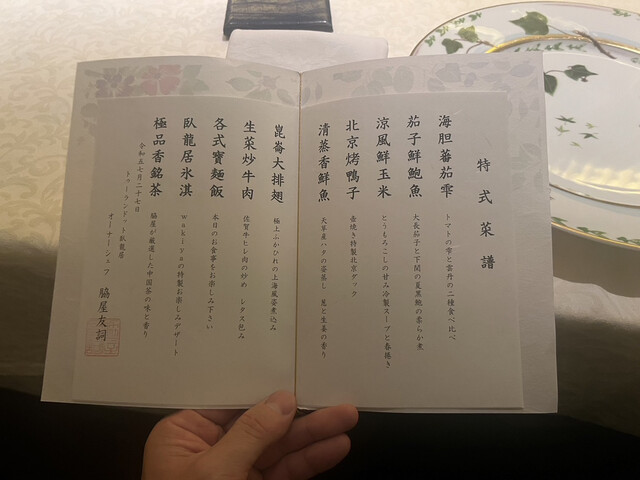 特式菜譜
海胆蕃茄雫
トマトの雫と雲丹の二種食べ比べ
茄子鮮鮑魚
大長茄子と下関の夏黒鮑の柔らか煮
涼風鮮玉米
とうもろこしの甘み冷製スープと春捲き
北京烤鴨子
壺焼き特製北京ダック
清蒸香鮮魚
天草産ハタの姿蒸し 葱と生姜の香り
崑崙大排翅
極上ふかひれの上海風姿煮込み
生菜炒牛肉
佐賀牛ヒレ肉の炒め レタス包み
各式寶麵飯
本日のお食事をお楽しみ下さい
臥龍居氷淇
wakiyaの特製お楽しみデザート
極品香銘茶
脇屋が厳選した中国茶の味と香り
令和五年七月二十七日
トゥーランドット臥龍居
オーナーシェフ 脇屋友詞